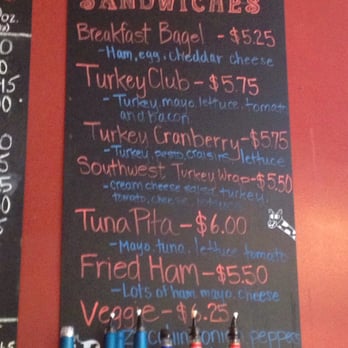 oz.
SANDWICHES
Breakfast Bagel - $5.25
- Ham, egg, cheddar cheese
Turkey Club - $5.75
- Turkey, mayo, lettuce, tomato
and bacon
Turkey Cranberry - $5.75
- Turkey, pesto, craisins, lettuce
Southwest Turkey Wrap - $5.50
- cream cheese salsa turkey,
tomato, cheese,
Tuna Pita - $6.00
- Mayo, tuna, lettuce tomato
Fried Ham - $5.50
- Lots of ham mayo, cheese
Veggie - .25
onion peppers